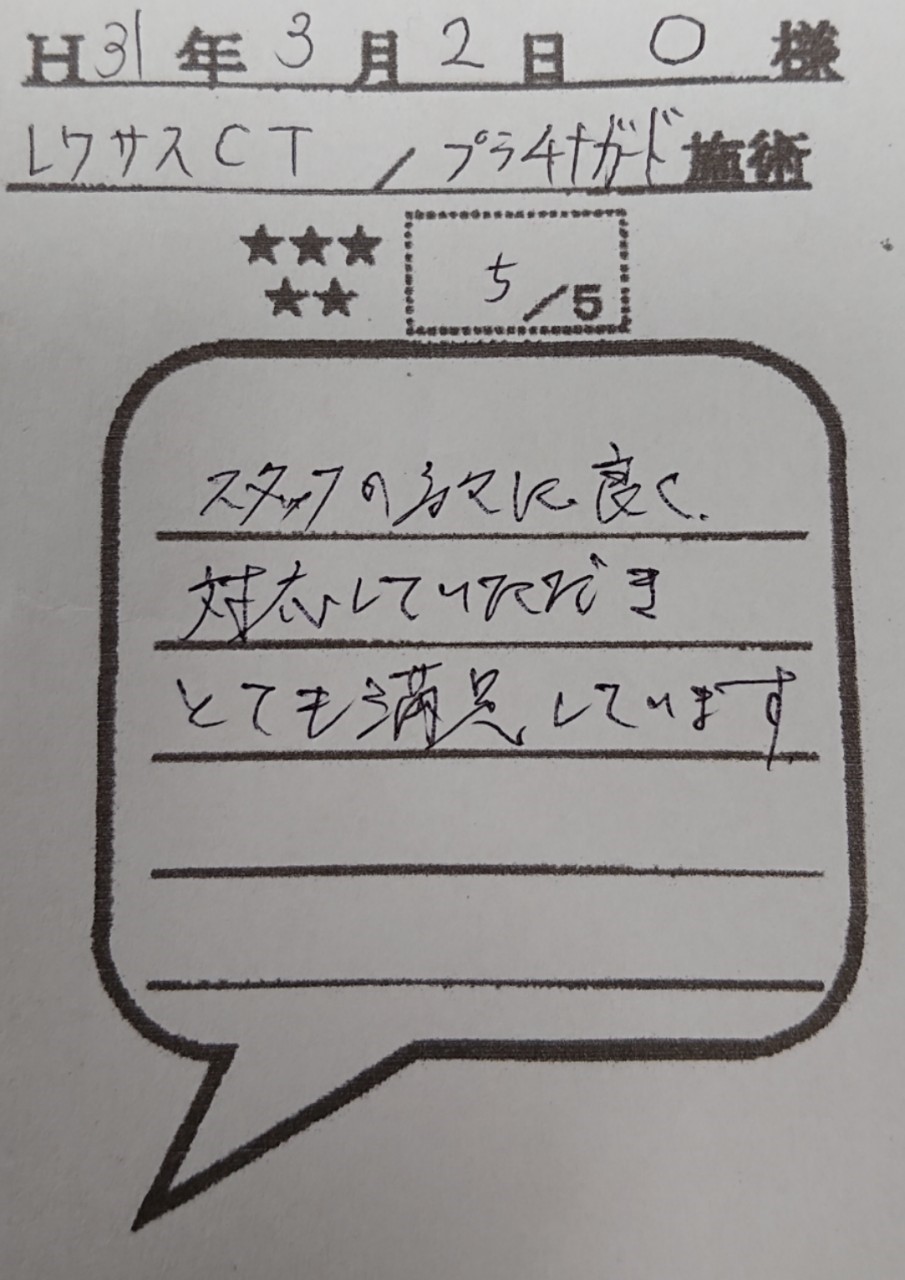 H31年3月2日 O様
レクサスCT / プラチナガード施術
★★★
★★ 5/5
スタッフの方々に良く
対応していただき
とても満足しています